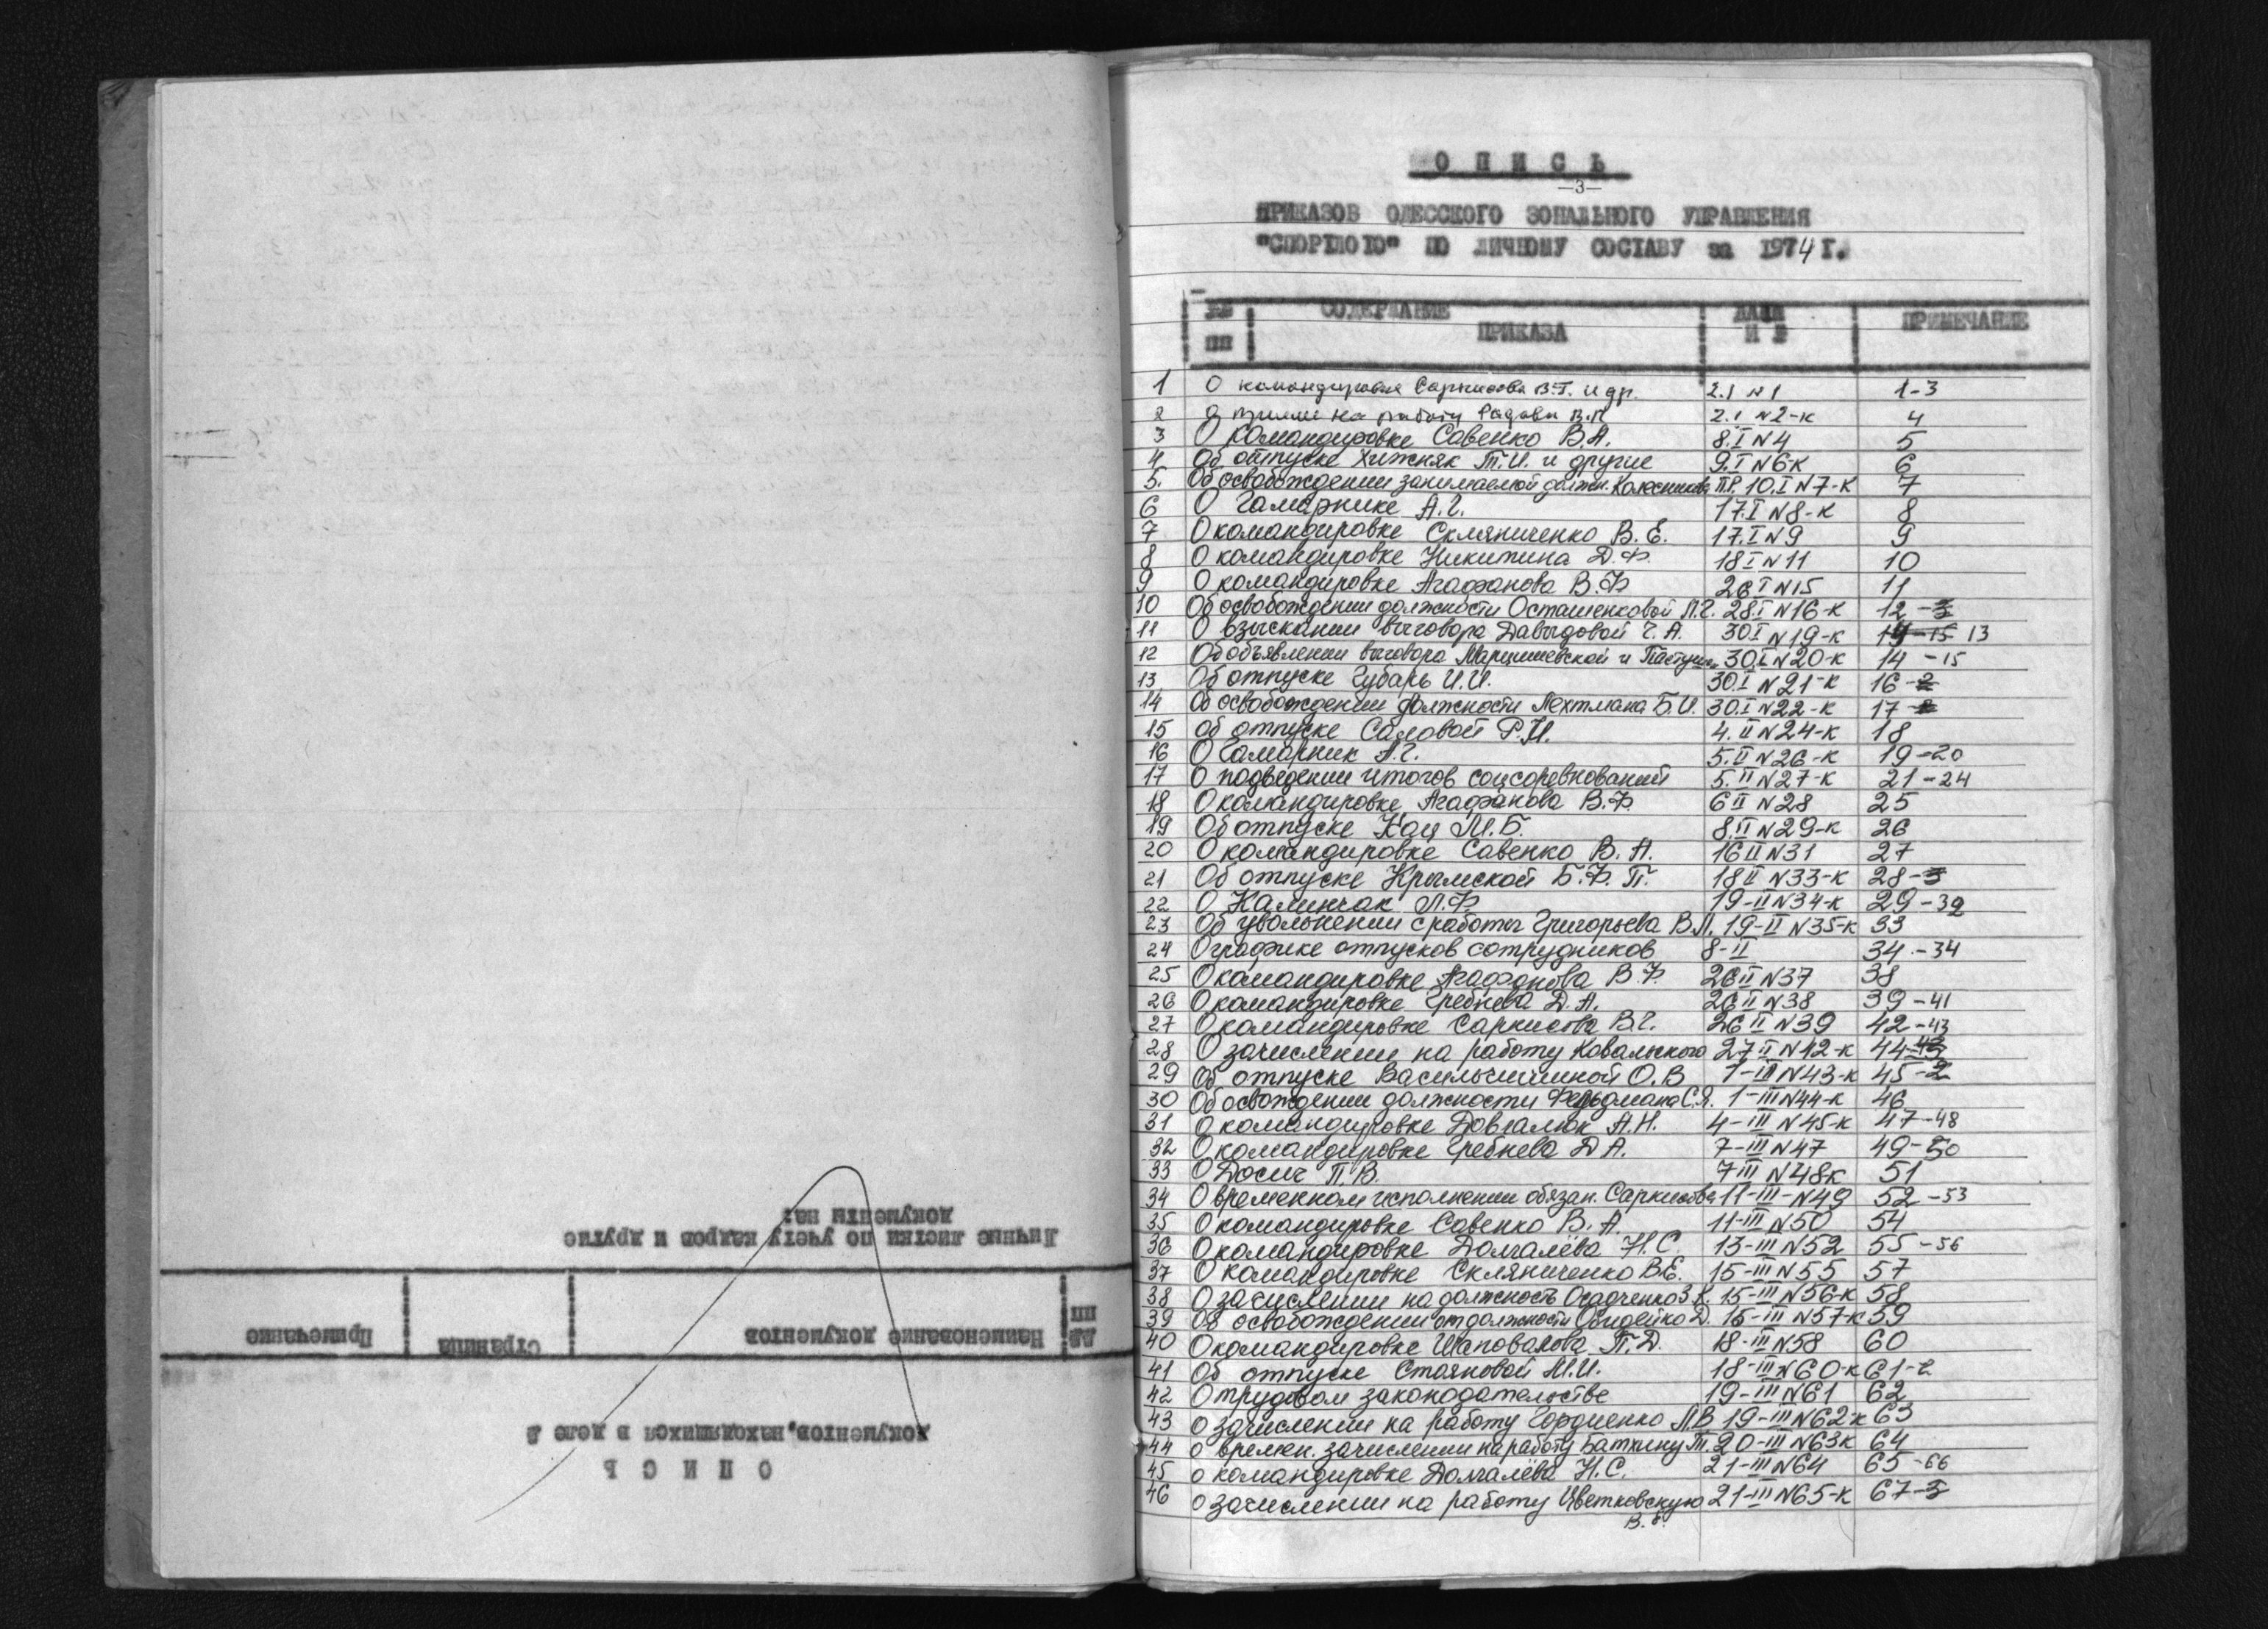 Личные листки по учету кадров и другие
документы на:
№№ пп Наименование документов Страница Примечание
документов, находящихся в деле №
О П И С Ь
О П И С Ь
—3—
ПРИКАЗОВ ОДЕССКОГО ЗОНАЛЬНОГО УПРАВЛЕНИЯ
"СПОРТЛОТО" ПО ЛИЧНОМУ СОСТАВУ за 1974 г.
№№ пп СОДЕРЖАНИЕ ПРИКАЗА ДАТА И № ПРИМЕЧАНИЕ
1 О командировке Саркисова В.Г. и др. 2.I N1 1-3
2 О приеме на работу В.П. 2.I N2-к 4
3 О командировке Савенко В.А. 8.I N4 5
4 Об отпуске Хижняк Т.И. и другие 9.I N6-к 6
5. Об освобождении занимаемой должн. Колесникова 10.I N7-к 7
6 О Гамарнике А.Г. 17.I N8-к 8
7 О командировке Скляниченко В.Е. 17.I N9 9
8 О командировке Никитина Д.Ф. 18 I N11 10
9 О командировке Агафанова В.Ф 26 I N15 11
10 Об освобождении должности Осташенковой Л.Г. 28.I N16-к 12
11 О взыскании выговора Давыдовой Г.А. 30 I N19-к 13
12 Об объявлении выговора Марцишевской и 30.I N20-к 14-15
13 Об отпуске Губарь И.И. 30.I N21-к 16
14 Об освобождении должности Лехтмана Б.И. 30.I N22-к 17
15 Об отпуске Саловой Р.И. 4.II N24-к 18
16 О Гамарник А.Г. 5.II N26-к 19-20
17 О подведении итогов соцсоревнований 5.II N27-к 21-24
18 О командировке Агафанова В.Ф. 6 II N28 25
19 Об отпуске Кац М.Б. 8.II N29-к 26
20 О командировке Савенко В.А. 16 II N31 27
21 Об отпуске Крымской Б.Ф.П. 18 II N33-к 28
22 О Калинчак Л.Ф 19-II N34-к 29-32
23 Об увольнении с работы Григорьева В.Л. 19-II N35-к 33
24 О графике отпусков сотрудников 8-II 34-34
25 О командировке Агафонова В.Ф. 26 II N37 38
26 О командировке Гребнева Д.А. 26 II N38 39-41
27 О командировке Саркисова В.Г. 26 II N39 42-43
28 О зачислении на работу Ковальского 27 II N42-к 44
29 Об отпуске Васильчишиной О.В 1-III N43-к 45-2
30 Об освождении должности Фельдмана С.Я. 1-III N44-к 46
31 О командировке Довгалюк А.Н. 4-III N45-к 47-48
32 О командировке Гребнева Д А. 7-III N47 49-50
33 О Досич П.В. 7 III N48к 51
34 О временном исполнении обязан. Саркисова 11-III-N49 52-53
35 О командировке Савенко В.А. 11-III N50 54
36 О командировке Долгалёва Н.С. 13-III N52 55-56
37 О командировке Скляниченко В.Е. 15-III N55 57
38 О зачислении на должность Осадченко З.К. 15-III N56-к 58
39 Об освобождении от должности Обидейко Д. 15-III N57-к 59
40 О командировке Шаповалова П.Д. 18-III N58 60
41 Об отпуске Стояновой М.И. 18-III N60-к 61-2
42 О трудовом законодательстве 19-III N61 62
43 о зачислении на работу Гордиенко Л.В 19-III N62-к 63
44 о времен. зачислении на работу Баткину Т. 20-III N63к 64
45 о командировке Долгалёва Н.С. 21-III N64 65-66
46 о зачислении на работу Цветковскую 21-III N65-к 67-3